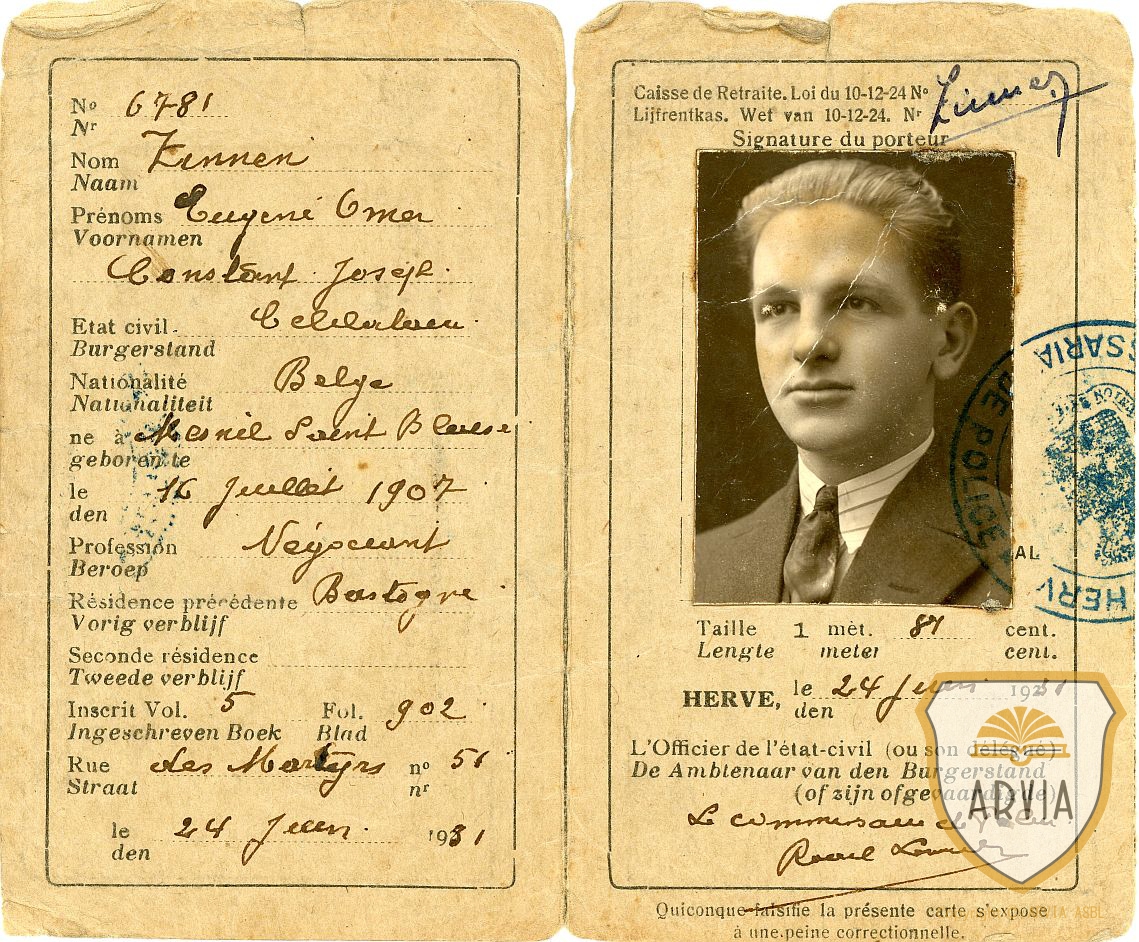 N° 6781
Nr
Nom Zinnen
Naam
Prénoms Eugène Omer
Voornamen
Constant Joseph
Etat civil Célibataire
Burgerstand
Nationalité Belge
Nationaliteit
ne à Mesnil Saint Blaise
geboren te
le 16 Juillet 1907
den
Profession Négociant
Beroep
Résidence précédente Bastogne
Vorig verblijf
Seconde résidence
Tweede verblijf
Inscrit Vol. 5 Fol. 902
Ingeschreven Boek Blad
Rue des Martyrs n° 51
Straat nr
le 24 Juin 1931
den
Caisse de Retraite. Loi du 10-12-24 N°
Lijfrentkas. Wet van 10-12-24. Nr
Zinnen
Signature du porteur
SSARIA
DE POLICE
HERV
AL
Taille 1 mèt. 87 cent.
Lengte meter cent.
HERVE, le 24 Juin 1931
den
L'Officier de l'état-civil (ou son délégué)
De Ambtenaar van den Burgerstand
(of zijn ofgevaardigde)
Le commissaire de
ARVIA
Quiconque falsifie la présente carte s'expose
à une peine correctionnelle.
ASBL